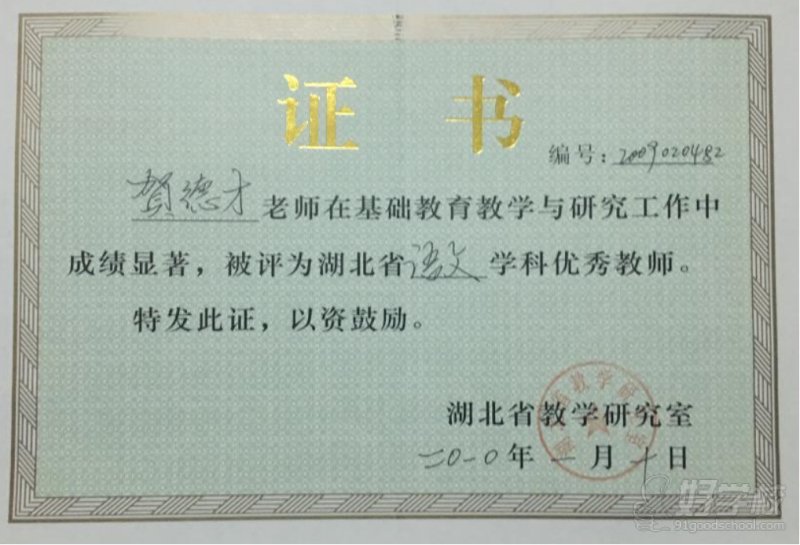 证 书
编号：2009020482
贺德才老师在基础教育教学与研究工作中
成绩显著，被评为湖北省语文学科优秀教师。
特发此证，以资鼓励。
湖北省教学研究室
二〇一〇年一月十日
好学校
91goodschool.com